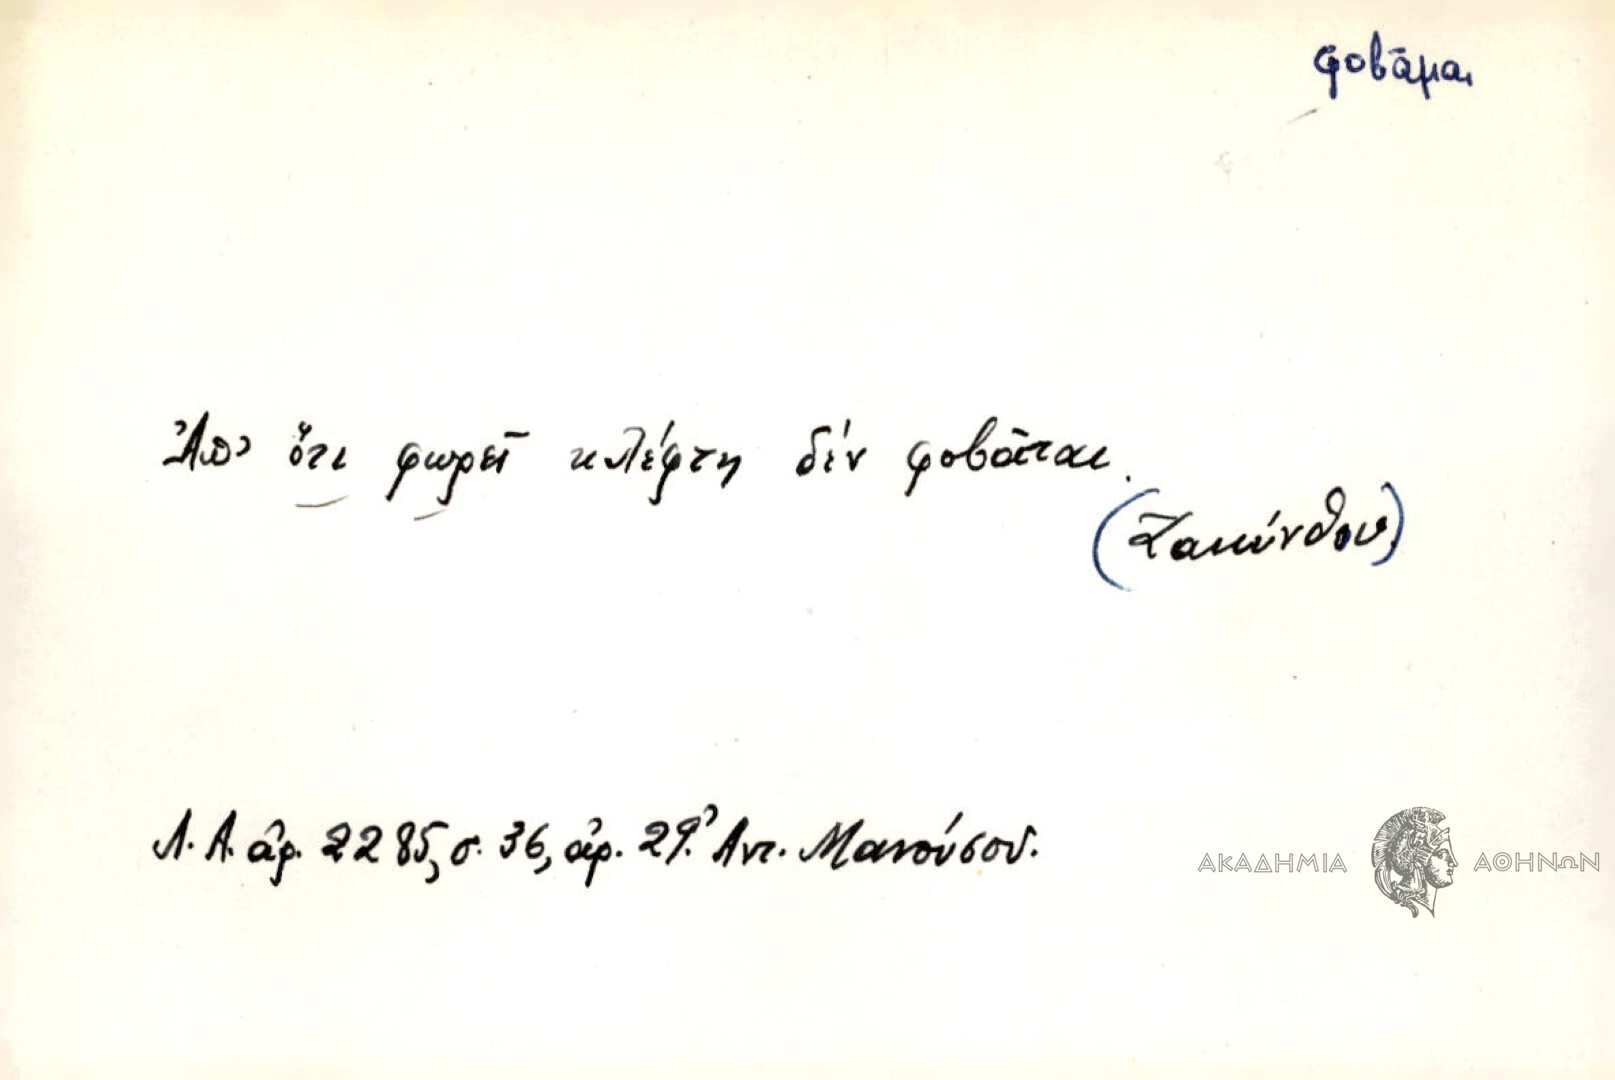 φοβᾶμαι
Ἀπ' ὅτι φωρεῖ κλέφτη δέν φοβᾶται.
(Ζακύνθου)
Λ.Α. ἀρ. 2285, σ. 36, ἀρ. 29. Ἀντ. Μανούσου.
ΑΚΑΔΗΜΙΑ ΑΘΗΝΩΝ